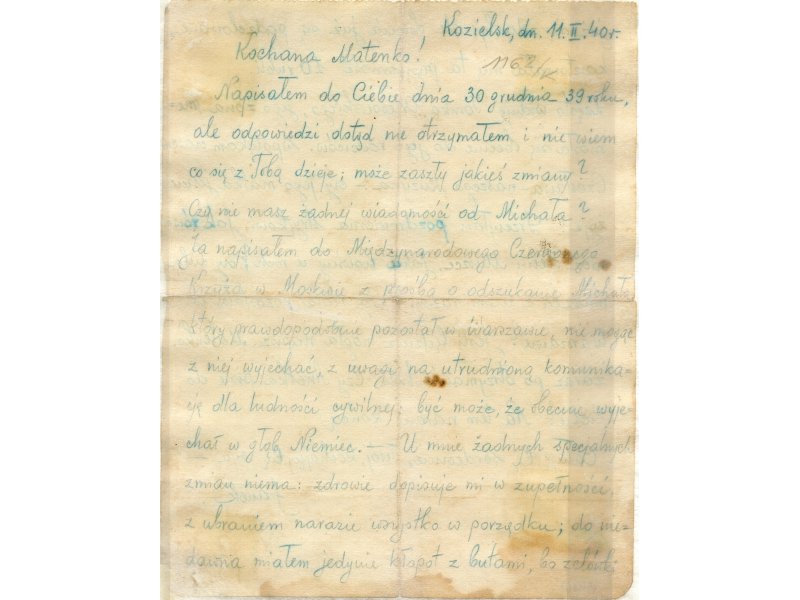 Kozielsk, dn. 11.II.40 r.
Kochana Mateńko!
1162/V
Napisałem do Ciebie dnia 30 grudnia 39 roku,
ale odpowiedzi dotąd nie otrzymałem i nie wiem
co się z Tobą dzieje; może zaszły jakieś zmiany?
Czy nie masz żadnej wiadomości od Michała?
Ja napisałem do Międzynarodowego Czerwonego
Krzyża w Moskwie z prośbą o odszukanie Michała,
który prawdopodobnie pozostał w Warszawie, nie mogąc
z niej wyjechać, z uwagi na utrudnioną komunika-
cję dla ludności cywilnej; być może, że obecnie wyje-
chał w głąb Niemiec. — U mnie żadnych specjalnych
zmian niema: zdrowie dopisuje mi w zupełności,
z ubraniem narazie wszystko w porządku; do nie-
dawna miałem jedynie kłopot z butami, bo zelówki